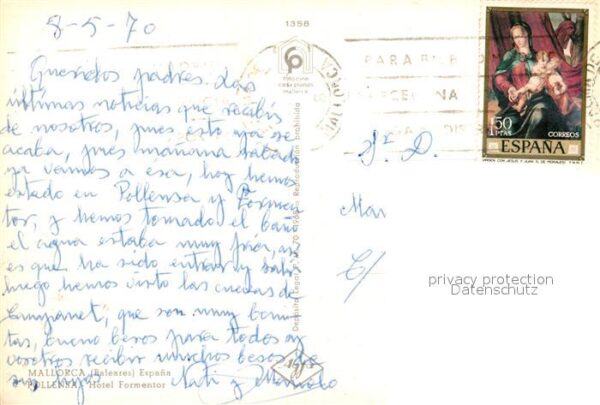 8-5-70
1358
Queridos padres. Las
últimas noticias que recibís
de nosotros, pues esto ya se
acaba, pues mañana sabado
ya vamos a esa, hoy hemos
estado en Pollensa y Formen
tor, y hemos tomado el baño
el agua estaba muy fria, así
es que ha sido entrar y salir
luego hemos visto las cuevas de
Campanet, que son muy boni
tas, bueno besos para todos y
vosotros recibir muchos besos de
sus hijos Nati y Manolo
MALLORCA (Baleares) España
POLLENSA. Hotel Formentor
Reproducción prohibida
Depósito Legal
PARA
1'50
PTAS
CORREOS
ESPAÑA
Sr. D.
Mar
C/
privacy protection
Datenschutz